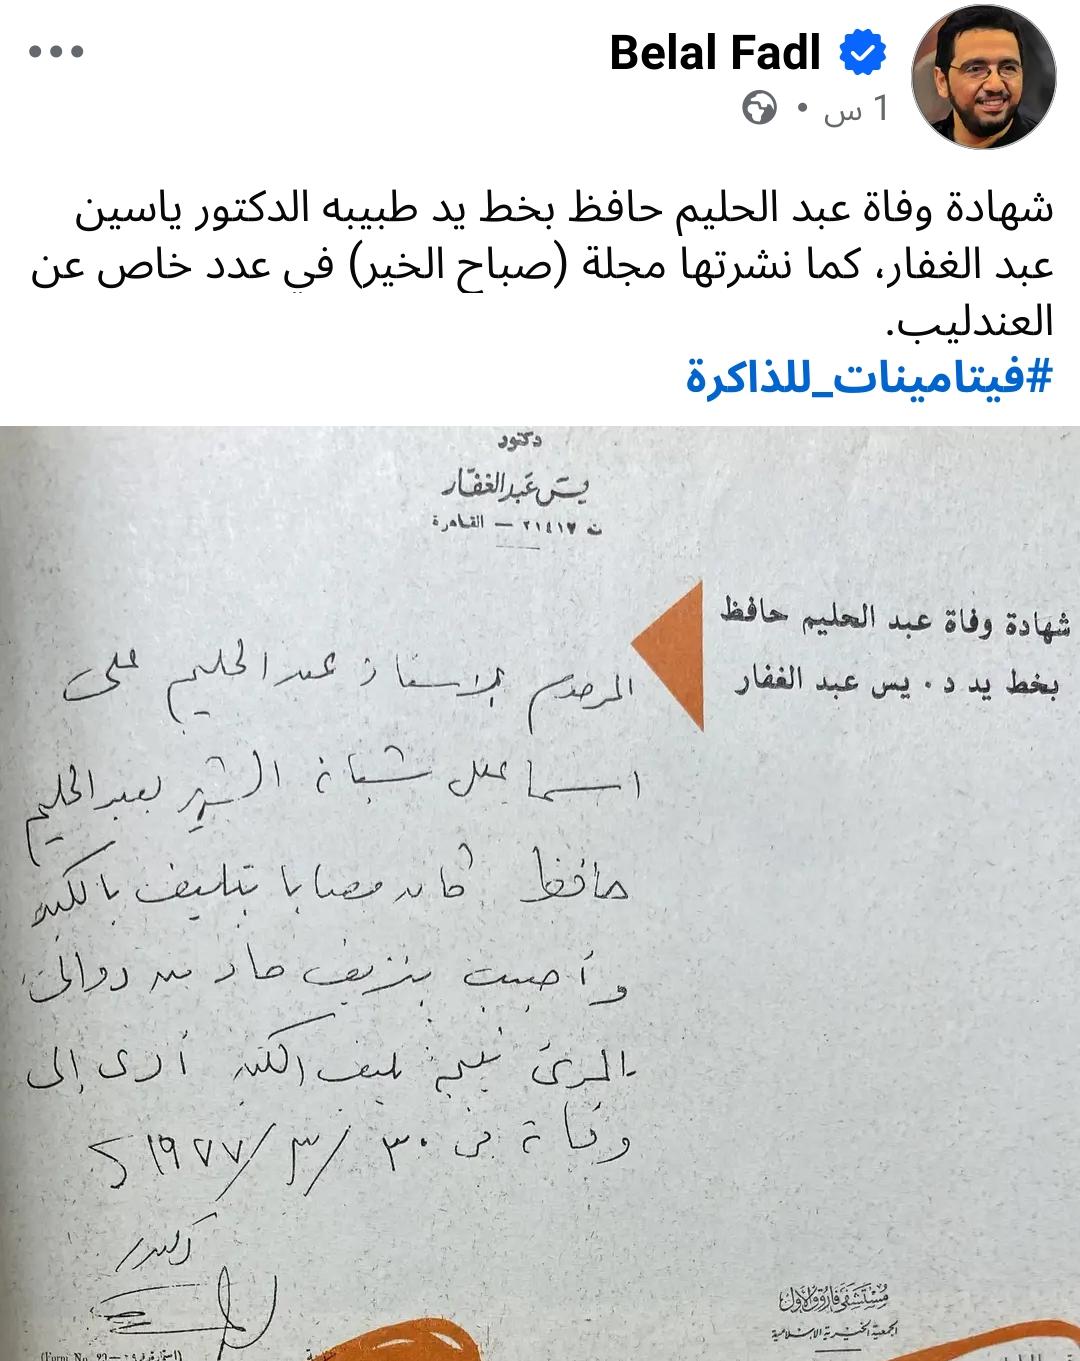 Belal Fadl
1 س
شهادة وفاة عبد الحليم حافظ بخط يد طبيبه الدكتور ياسين
عبد الغفار، كما نشرتها مجلة (صباح الخير) في عدد خاص عن
العندليب.
#فيتامينات_للذاكرة
دكتور
يس عبد الغفار
ت ٢١٤١٧ — القاهرة
شهادة وفاة عبد الحليم حافظ
بخط يد د . يس عبد الغفار
المرحوم الاستاذ عبد الحليم على
اسماعيل شبانة الشهير بعبد الحليم
حافظ كان مصابا بتليف بالكبد
وأصيب بنزيف حاد من دوالى
المرئ نتيجة تليف الكبد أدى إلى
وفاة فى ٣٠ / ٣ / ١٩٧٧
دكتور
مستشفى فاروق الأول
الجمعية الخيرية الاسلامية